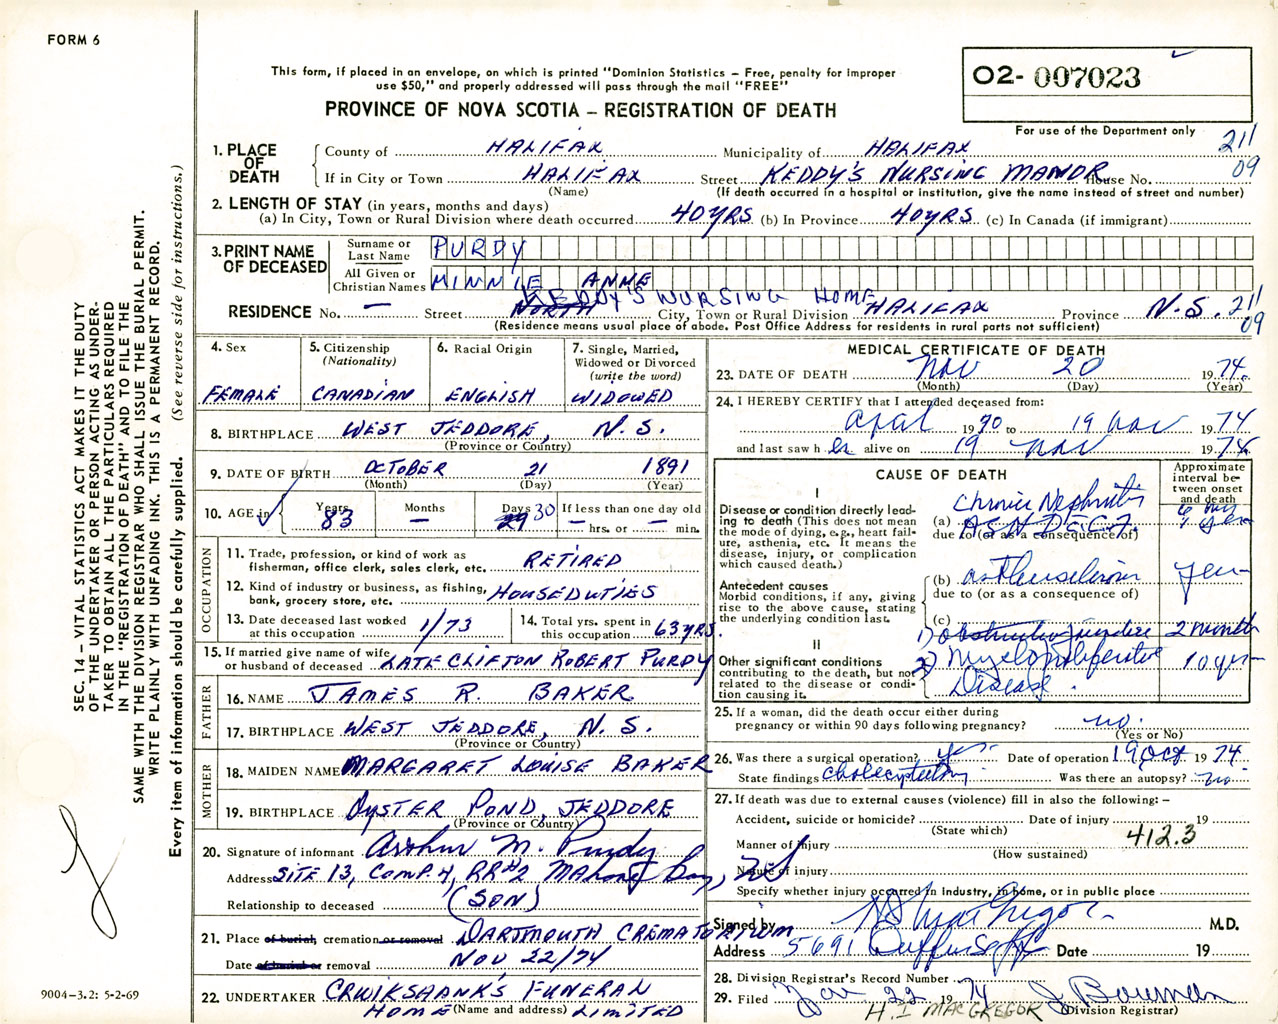 FORM 6
This form, if placed in an envelope, on which is printed "Dominion Statistics – Free, penalty for improper
use $50," and properly addressed will pass through the mail "FREE"
PROVINCE OF NOVA SCOTIA – REGISTRATION OF DEATH
02-007023
For use of the Department only
211
09
1. PLACE OF DEATH
County of HALIFAX Municipality of HALIFAX
If in City or Town HALIFAX Street KEDDY'S NURSING MANOR House No.
(Name) (If death occurred in a hospital or institution, give the name instead of street and number)
2. LENGTH OF STAY (in years, months and days)
(a) In City, Town or Rural Division where death occurred 40 YRS (b) In Province 40 YRS (c) In Canada (if immigrant)
3. PRINT NAME OF DECEASED
Surname or Last Name PURDY
All Given or Christian Names MINNIE ANNE
KEDDY'S NURSING HOME
RESIDENCE No. — Street NORTH City, Town or Rural Division HALIFAX Province N.S. 211
09
(Residence means usual place of abode. Post Office Address for residents in rural parts not sufficient)
4. Sex
FEMALE
5. Citizenship
(Nationality)
CANADIAN
6. Racial Origin
ENGLISH
7. Single, Married,
Widowed or Divorced
(write the word)
WIDOWED
8. BIRTHPLACE WEST JEDDORE, N.S.
(Province or Country)
9. DATE OF BIRTH OCTOBER 21 1891
(Month) (Day) (Year)
10. AGE in Years 83 Months — Days 29 30 If less than one day old
— hrs. or — min.
OCCUPATION
11. Trade, profession, or kind of work as
fisherman, office clerk, sales clerk, etc. RETIRED
12. Kind of industry or business, as fishing,
bank, grocery store, etc. HOUSEDUTIES
13. Date deceased last worked
at this occupation 1/73
14. Total yrs. spent in
this occupation 63 YRS.
15. If married give name of wife
or husband of deceased LATE CLIFTON ROBERT PURDY
FATHER
16. NAME JAMES R. BAKER
17. BIRTHPLACE WEST JEDDORE, N.S.
(Province or Country)
MOTHER
18. MAIDEN NAME MARGARET LOUISE BAKER
19. BIRTHPLACE OYSTER POND, JEDDORE
(Province or Country)
20. Signature of informant Arthur M. Purdy
Address SITE 13, COMP. 4, RR#2 Mahone Bay, NS
Relationship to deceased (SON)
21. Place of burial, cremation or removal DARTMOUTH CREMATORIUM
Date of burial or removal NOV 22/74
22. UNDERTAKER CRUIKSHANK'S FUNERAL
HOME (Name and address) LIMITED
MEDICAL CERTIFICATE OF DEATH
23. DATE OF DEATH Nov 20 1974.
(Month) (Day) (Year)
24. I HEREBY CERTIFY that I attended deceased from:
April 1970 to 19 Nov 1974
and last saw h er alive on 19 Nov 1974
CAUSE OF DEATH
Approximate
interval be-
tween onset
and death
I
Disease or condition directly lead-
ing to death (This does not mean
the mode of dying, e.g., heart fail-
ure, asthenia, etc. It means the
disease, injury, or complication
which caused death.)
Chronic Nephritis
(a) A.S.H.D. C.C.F.
due to (or as a consequence of)
Antecedent causes
Morbid conditions, if any, giving
rise to the above cause, stating
the underlying condition last.
(b) arteriosclerosis years
due to (or as a consequence of)
(c)
II
Other significant conditions
contributing to the death, but not
related to the disease or condi-
tion causing it.
1) Obstructive Jaundice 2 months
2) Myeloproliferative 10 yrs
Disease.
25. If a woman, did the death occur either during
pregnancy or within 90 days following pregnancy? no.
(Yes or No)
26. Was there a surgical operation? yes. Date of operation 19 Oct 1974
State findings cholecystectomy Was there an autopsy? no.
27. If death was due to external causes (violence) fill in also the following: –
Accident, suicide or homicide? Date of injury 19
(State which)
412.3
Manner of injury
(How sustained)
Nature of injury
Specify whether injury occurred in industry, in home, or in public place
Signed by H I MacGregor M.D.
Address 5691 Duffus St Hfx Date 19
28. Division Registrar's Record Number
29. Filed Nov 22 1974 J Bowman
(Division Registrar)
H. I MACGREGOR
SEC. 14 – VITAL STATISTICS ACT MAKES IT THE DUTY
OF THE UNDERTAKER OR PERSON ACTING AS UNDER-
TAKER TO OBTAIN ALL THE PARTICULARS REQUIRED
IN THE "REGISTRATION OF DEATH" AND TO FILE THE
SAME WITH THE DIVISION REGISTRAR WHO SHALL ISSUE THE BURIAL PERMIT.
WRITE PLAINLY WITH UNFADING INK. THIS IS A PERMANENT RECORD.
Every item of information should be carefully supplied. (See reverse side for instructions.)
9004-3.2: 5-2-69